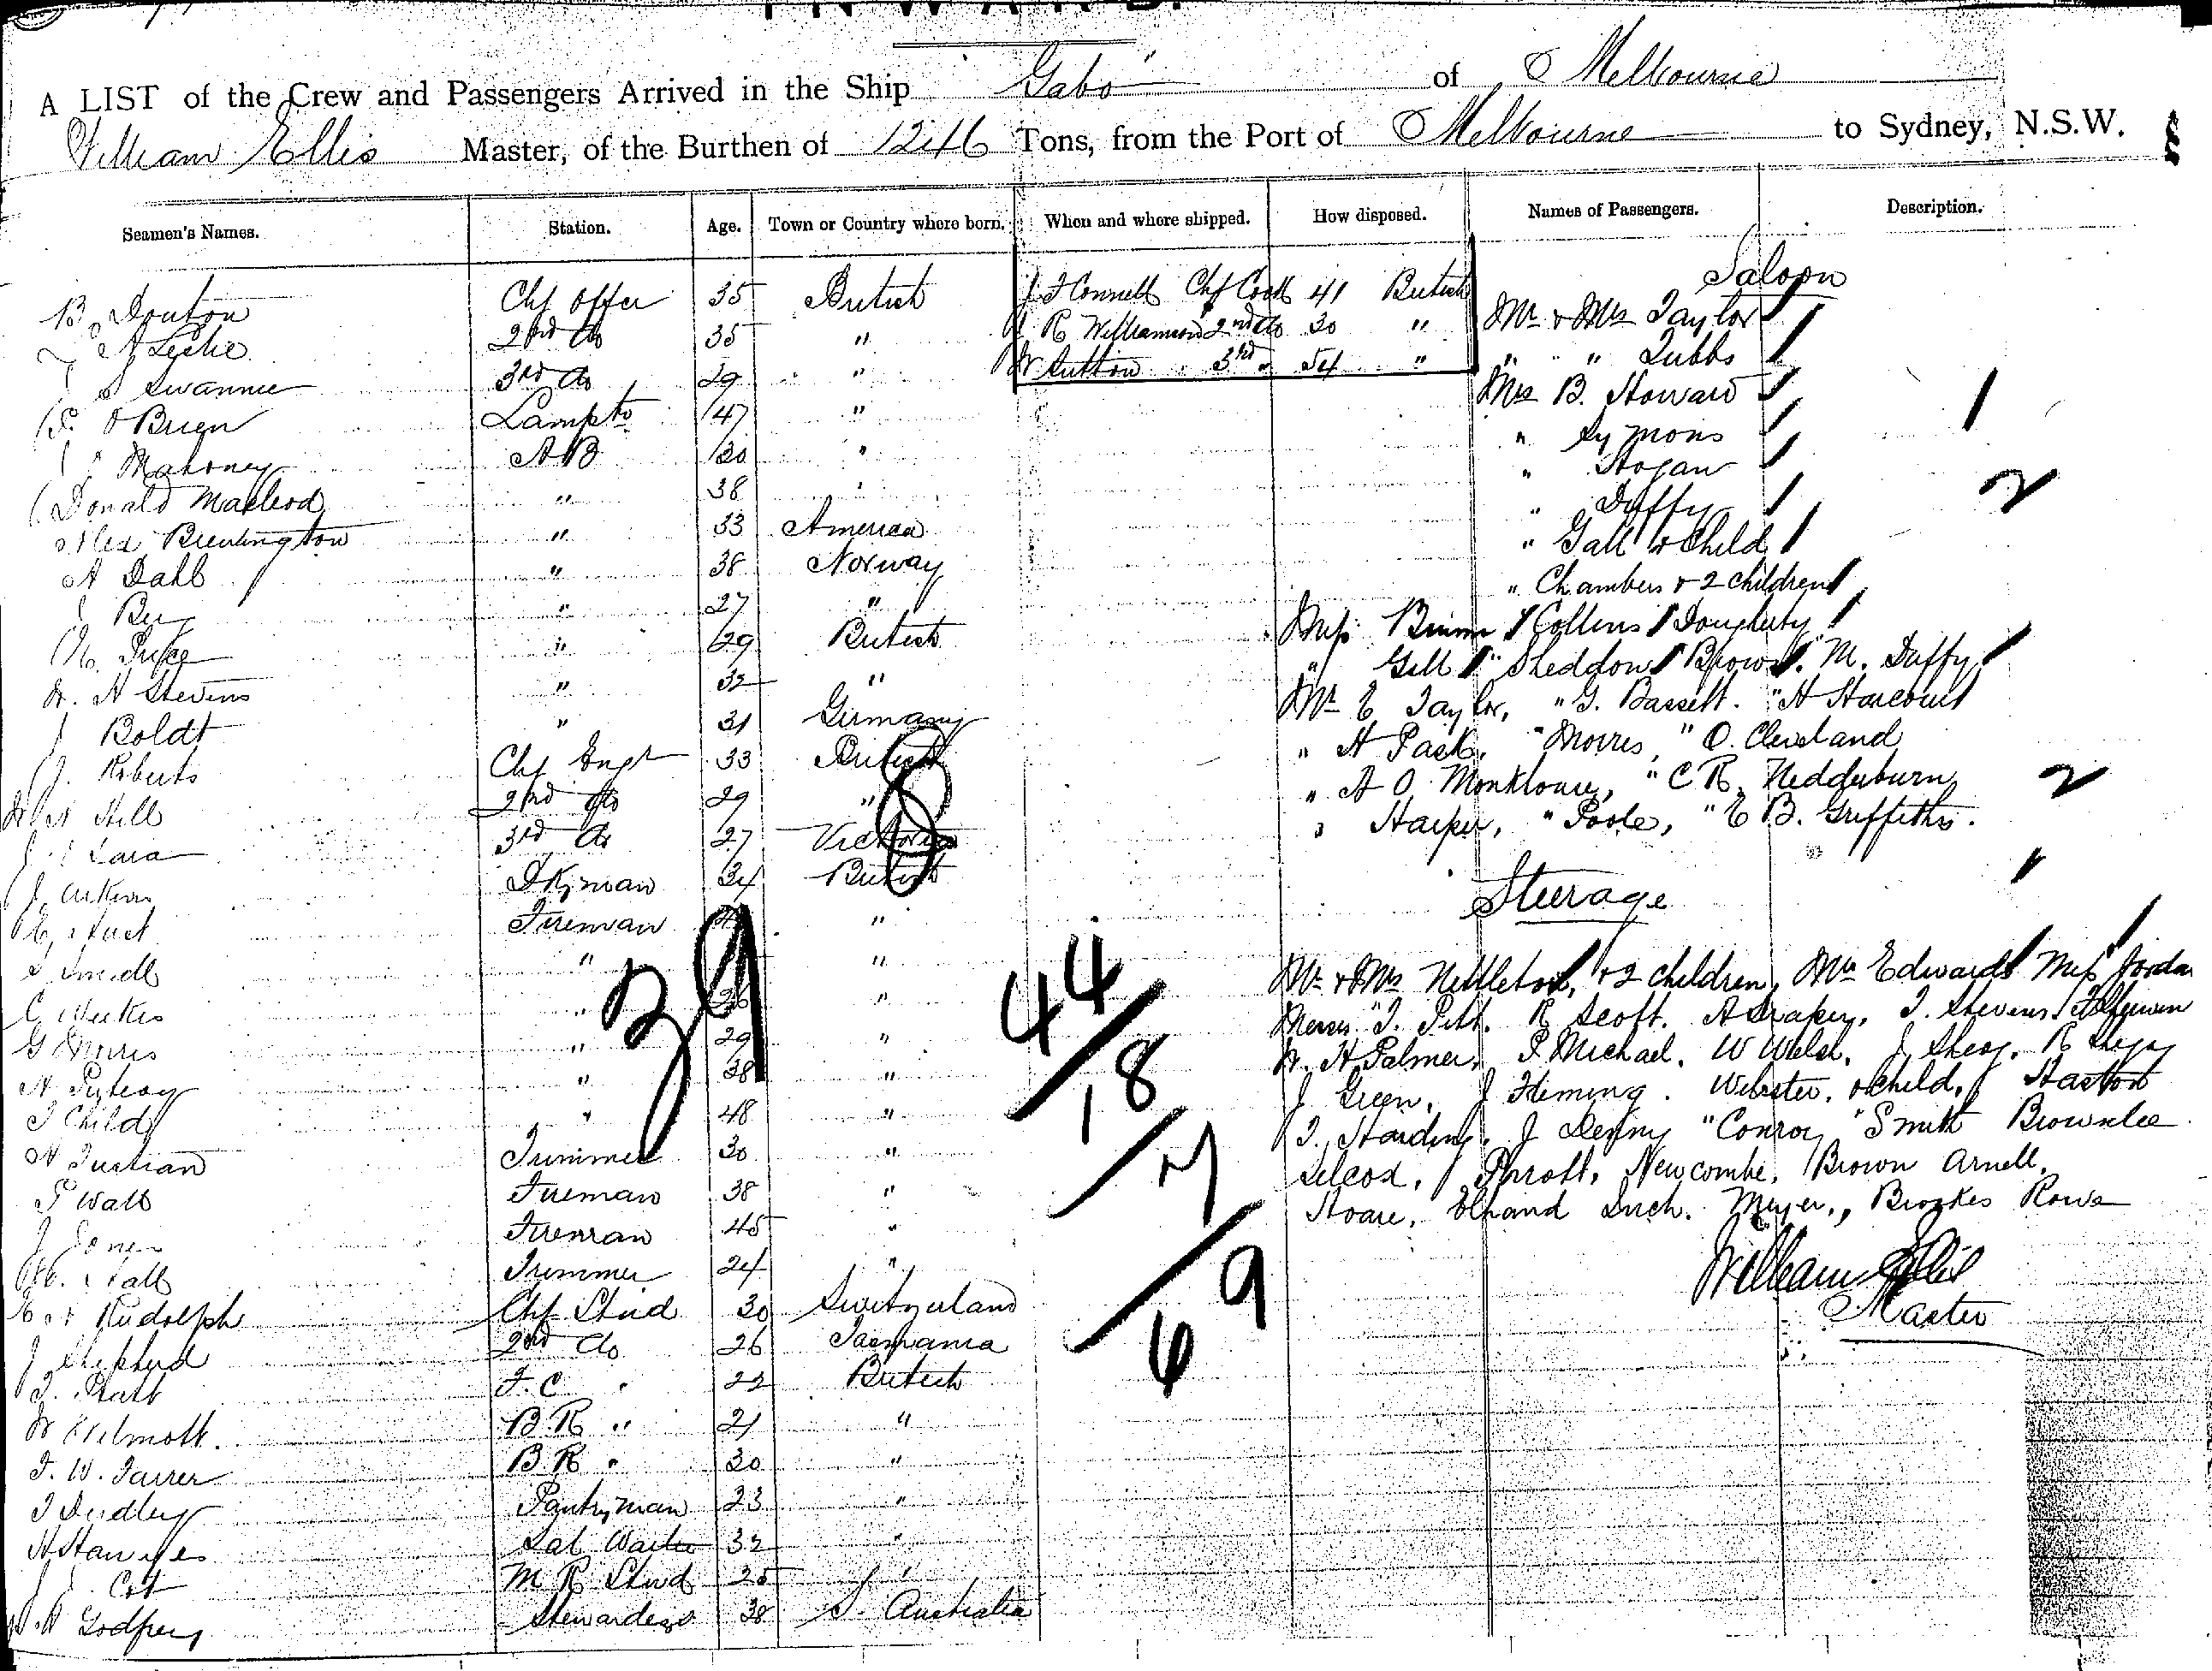 A LIST of the Crew and Passengers Arrived in the Ship "Gabo" of Melbourne
William Ellis Master, of the Burthen of 1246 Tons, from the Port of Melbourne to Sydney, N.S.W.
Seamen's Names. Station. Age. Town or Country where born. When and where shipped. How disposed. Names of Passengers. Description.
Saloon
B Douton Chf Offer 35 British J F Connell Chf Cook 41 British Mr & Mrs Taylor
Leslie 2nd Do 35 " J R Williamson 2nd Do 30 " " " Tubbs
S Swannie 3rd Do 29 " W Sutton 3rd " 54 " Mrs B. Howard
O'Brien Lamptr 47 " " Symons
J Mahoney AB 20 " " Hogan
Donald Macleod " 38 " " Duffy
Alex Breulington " 33 America " Gall & Child
A Dahl " 38 Norway " Chambers & 2 children
" 27 " Miss Collins Dougherty
29 British " Gill " Sheddon " Brown " M. Duffy
W. H Stevens " 32 " Mr E Taylor, " G. Bassett. " H Harcourt
J Boldt " 31 Germany " H Pack, " Morris, " O. Cleveland
J. Roberts Chf Engr 33 British " A O Monkhouse, " C R. Nedderburn
Hill 2nd Do 29 " " Harper, " Poole, " E B. Griffiths.
3rd Do 27 Victoria
J. Aitken Dkyman 34 British Steerage
Fireman "
" "
C Weekes " 26 " Mr & Mrs Nettleton, & 2 children, Mrs Edwards Miss Jordan
G Morris " 29 " Messrs T. Pitt. R Scott. A Draper, T. Stevens
" 38 " W. H Palmer, P Michael. W Welsh. J Sheay. R Sheay
T Child " 48 " J Green, J Fleming. Webster, & Child, Haston
Trimmer 30 " T. Harding, J Denny " Conroy " Smith Brownlee
T Wall Fireman 38 " Silcox, Newcombe, Brown Arnell.
J Jones Fireman 45 " Hoare, Meyer, Brookes Rowe
Hall Trimmer 24 " William Ellis
Rudolph Chf Stwd 30 Switzerland Master
J Shepherd 2nd Do 26 Tasmania
F. C " 22 British
W Wilmott. B. R " 21 "
F. W. Farrer B R " 30 "
T Dudley Pantryman 23 "
H Hawyes Sal Waiter 32 "
Cot M R Stwd 25 "
Godfrey Stewardess 38 S. Australia
1
2
2
1
39
44
18
7
9
6